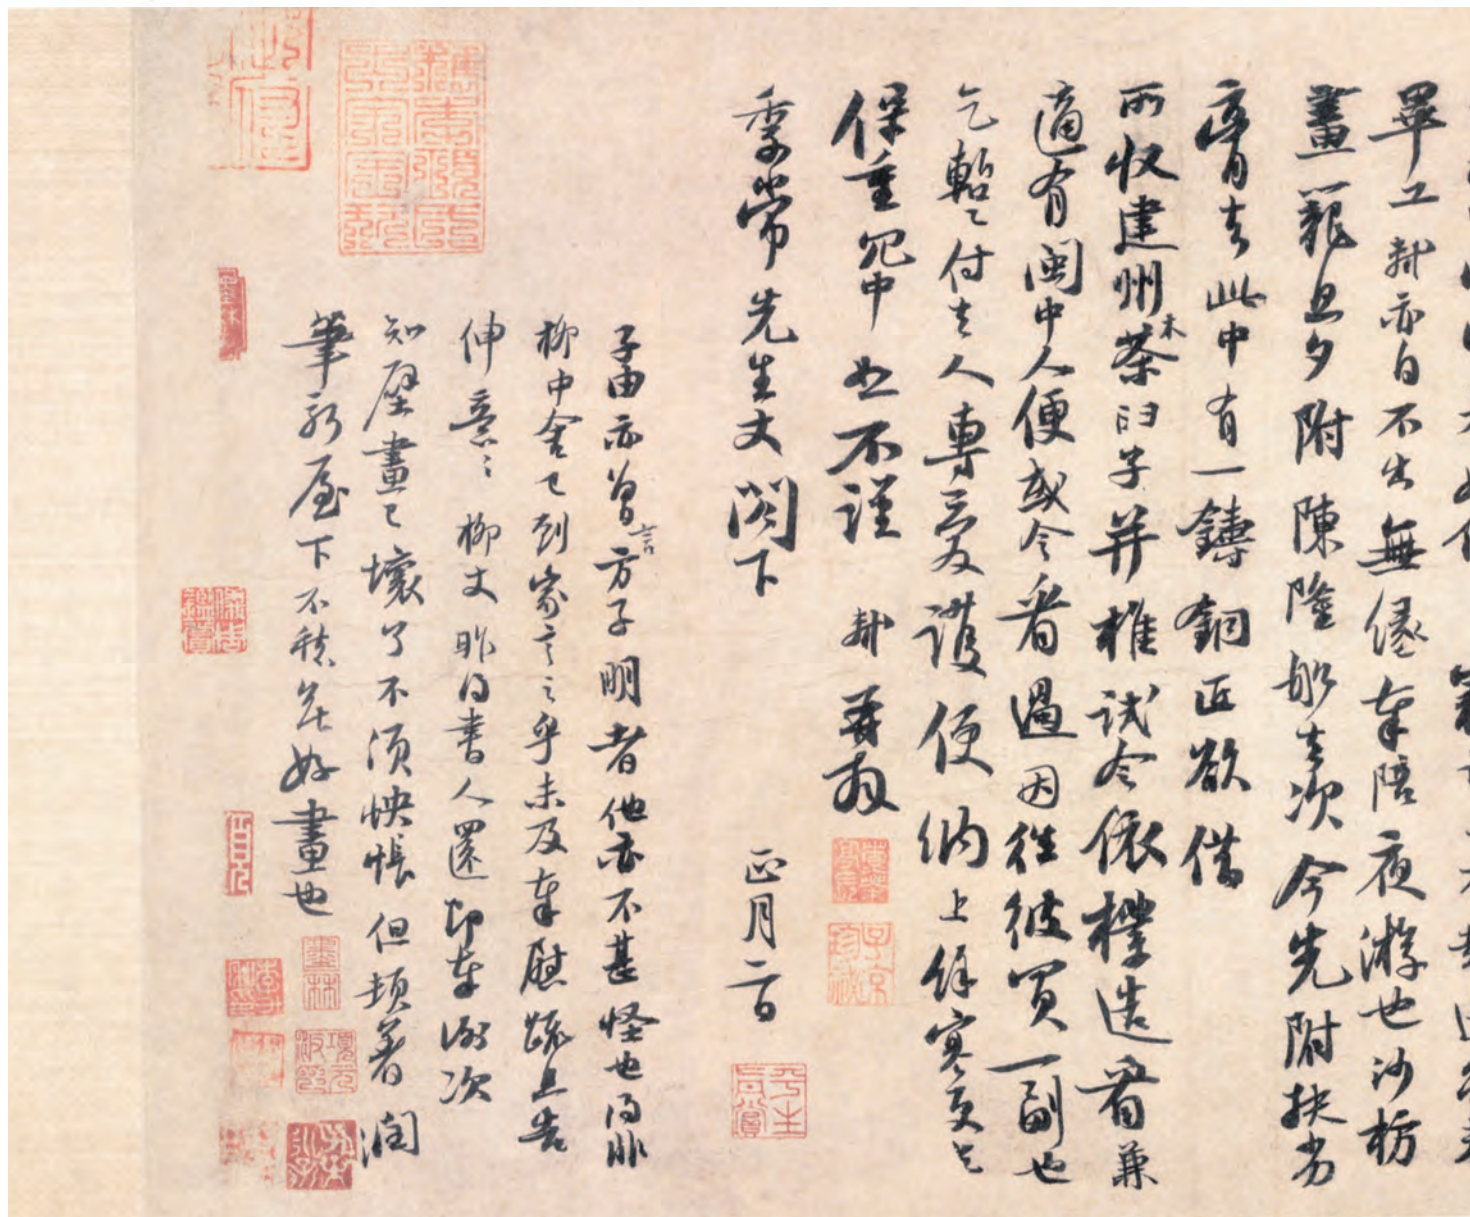 畢工軾亦自不出無緣奉陪夜游也沙枋
畫籠旦夕附陳隆船去次今先附扶劣
膏去此中有一鑄銅匠欲借
所收建州木茶臼子并椎試令依樣造看兼
適有閩中人便或令看過因往彼買一副也
乞暫付去人專愛護便納上餘寒更乞
保重冗中恕不謹 軾再拜
季常先生丈閣下 正月二日
子由亦曾言方子明者他亦不甚怪也得非
柳中舍已到家言之乎未及奉慰疏且告
伸意〻柳丈昨得書人還即奉謝次
知壁畫已壞了不須怏悵但頓著潤
筆新屋下不愁無好畫也